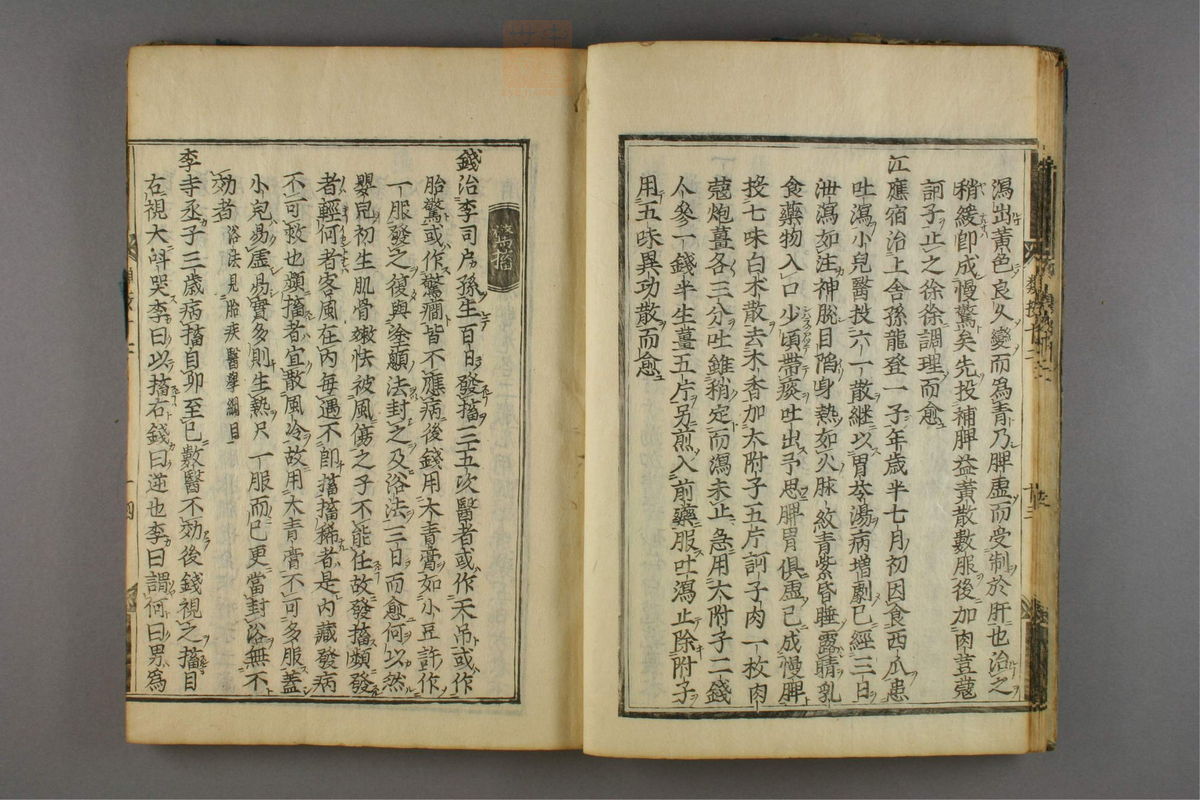 瀉出黃色良久變而為青乃脾虛而受制於肝也治之
稍緩卽成慢驚矣先投補脾益黃散數服後加肉荳蔻
訶子止之徐徐調理而愈
江應宿治上舍孫龍登一子年歲半七月初因食西瓜患
吐瀉小兒醫投六一散繼以胃苓湯病增劇已經三日
泄瀉如注神脫目陷身熱如火脉紋青紫昏睡露睛乳
食藥物入口少頃帶痰吐出予思脾胃俱虛已成慢脾
投七味白朮散去木香加大附子五片訶子肉一枚肉
蔻炮薑各三分吐雖稍定而瀉未止急用大附子二錢
人參一錢半生薑五片另煎入前藥服吐瀉止除附子
用五味異功散而愈
驚搐
錢治李司户孫生百日發搐三五次醫者或作天吊或作
胎驚或作驚癎皆不應病後錢用大青膏如小豆許作
一服發之復與塗顖法封之及浴法三日而愈何以然
嬰兒初生肌骨嫩怯被風傷之子不能任故發搐頻發
者輕何者客風在內每遇不卽搐搐稀者是內藏發病
不可救也頻搐者宜散風冷故用大青膏不可多服蓋
小兒易虛易實多則生熱只一服而已更當封浴無不
効者 浴法見胎疾醫學綱目
李寺丞子三歲病搐自卯至巳數醫不効後錢視之搐目
右視大呌哭李曰以搐右錢曰逆也李曰謂何曰男為